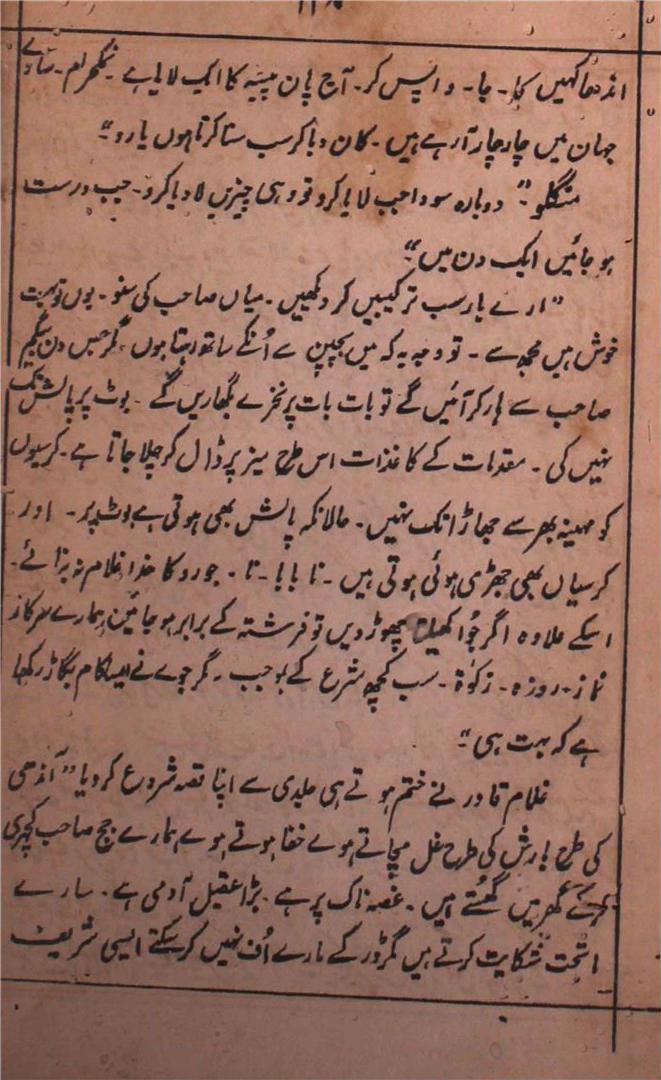 اندھا کہیں کا۔ جا۔ واپس کر۔ آج پان پیسہ کا ایک لایا ہے۔ نمکحرام۔ سارے
جہان میں چار چار آرہے ہیں۔ کان دبا کر سب سنا کرتا ہوں یارو"
منگلو:" دوبارہ سودا جب لایا کرو تو وہی چیزیں لا دیا کرو۔ جب درست
ہو جائیں ایک دن میں"
"ارے یار سب ترکیبیں کر دیکھیں۔ میاں صاحب کی سنو۔ یوں تو بہت
خوش ہیں مجھ سے۔ تو وجہ یہ کہ میں بچپن سے اُنکے ساتھ رہتا ہوں، مگر جس دن بیگم
صاحب سے لڑ کر آئیں گے تو بات بات پر نخرے بگھاریں گے۔ بوٹ پر پالش تک
نہیں کی۔ مقدمات کے کاغذات اس طرح میز پر ڈال کر چلا جاتا ہے۔ کرسیوں
کو مہینہ بھر سے جھاڑا تک نہیں۔ حالانکہ پالش بھی ہوتی ہے بوٹ پر۔ اور
کرسیاں بھی جھڑی ہوئی ہوتی ہیں۔ نا بابا۔ نا۔ جورو کا خدا غلام نہ بنائے۔
اسکے علاوہ اگر جُوا کھیلنا چھوڑ دیں تو فرشتہ کے برابر ہو جائیں ہمارے سرکار
نماز۔ روزہ۔ زکوٰۃ۔ سب کچھ شرع کے بموجب۔ مگر جوے نے ایسا کام بگاڑ رکھا
ہے کہ بہت ہی"
غلام قادر نے ختم ہوتے ہی جلدی سے اپنا قصہ شروع کر دیا" آندھی
کی طرح بارش کی طرح غل مچاتے ہوے خفا ہوتے ہوے ہمارے جج صاحب کچہری
کرکے گھر میں گھُستے ہیں۔ غصہ ناک پر ہے۔ بڑا عقیل آدمی ہے۔ سارے
ماتحت شکایت کرتے ہیں مگر ڈر کے مارے اُف نہیں کرسکتے ایسی شریف